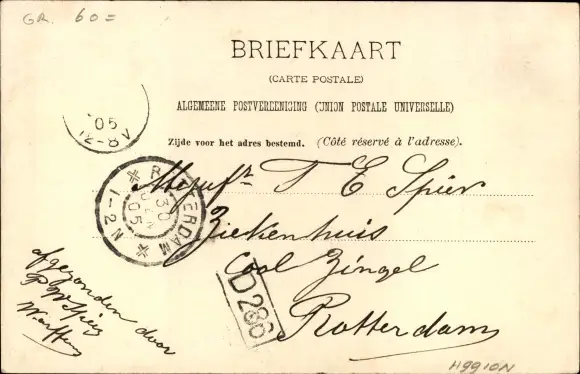 GR. 60=
BRIEFKAART
(CARTE POSTALE)
ALGEMEENE POSTVEREENIGING (UNION POSTALE UNIVERSELLE)
Zijde voor het adres bestemd. (Côté réservé à l'adresse).
05
12-8V
ROTTERDAM
30
05
1-2N
Mejufr T E Spier
Ziekenhuis
Cool Zingel
Rotterdam
D 286
afgezonden door
H9910N